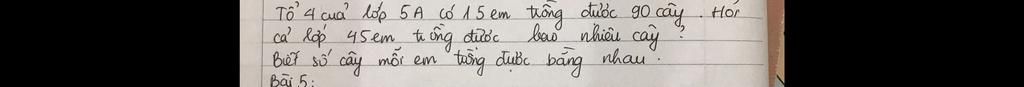 Tổ 4 của lớp 5A có 15 em trồng được 90 cây. Hỏi
cả lớp 45em trồng được bao nhiêu cây?
Biết số cây mỗi em trồng được bằng nhau.
Bài 5: